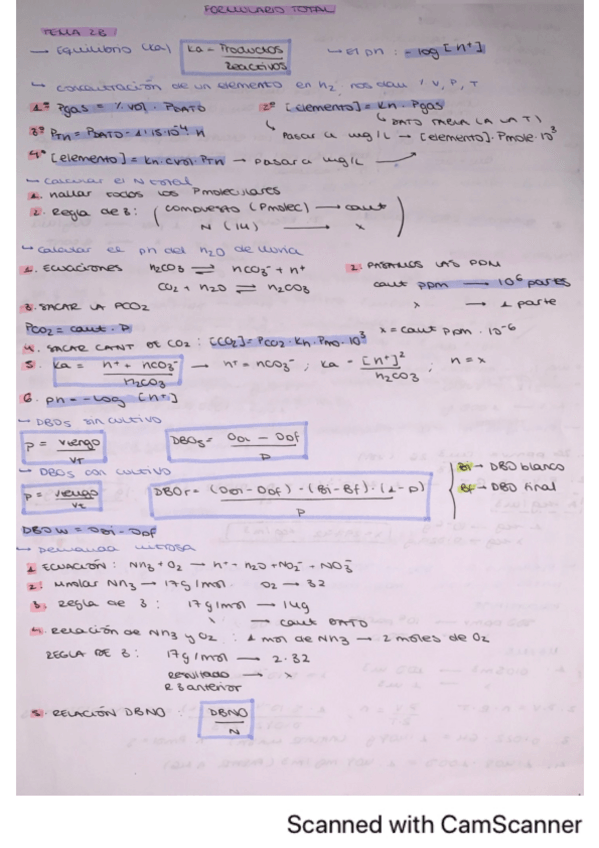 FORMULARIO TOTAL
TEMA 2B
→ Equilibrio (Ka) Ka = Productos / Reactivos → el pH: -log [H+]
→ concentración de un elemento en H2, nos dan % V, P, T
1º Pgas = % vol. PDATO 2º [elemento] = KH · Pgas
↳ DATO TABLA (A LA T)
3º PTH = PDATO - 1'15·10⁻⁴ H ↳ Pasar a mg/L → [elemento]·Pmolec·10³
4º [elemento] = KH · cvol · PTH → pasar a mg/L
→ Calcular el N total
1. Hallar todos los Pmoleculares
2. Regla de 3: ( compuesto (Pmolec) → cant
N (14) → x )
→ Calcular el pH del H2O de lluvia
1. Ecuaciones H2CO3 ⇌ HCO3⁻ + H+ 2. PASAMOS LAS PPM
CO2 + H2O ⇌ H2CO3 cant ppm → 10⁶ partes
3. SACAR LA PCO2 x → 1 parte
PCO2 = cant · P x = cant ppm · 10⁻⁶
4. SACAR CANT DE CO2: [CO2] = PCO2 · KH · PMO · 10³
5. Ka = H+ · HCO3⁻ / H2CO3 → H+ = HCO3⁻ ; Ka = [H+]² / H2CO3 ; H = x
6. pH = -log [H+]
→ DBO5 sin cultivo
P = Vriego / VT DBO5 = ODi - ODf / P
→ DBO5 con cultivo
P = Vriego / Vt DBOr = (ODi - ODf) - (Bi - Bf) · (1 - P) / P
Bi → DBO blanco
Bf → DBO final
DBOw = ODi - ODf
→ Demanda nitrosa
1. ECUACIÓN: NH3 + O2 → H+ + H2O + NO2⁻ + NO3⁻
2. Mmolar NH3 → 17 g/mol O2 → 32
3. Regla de 3: 17 g/mol → 14g
x → cant DATO
4. Relación de NH3 y O2: 1 mol de NH3 → 2 moles de O2
REGLA DE 3: 17 g/mol → 2·32
Resultado → x
R 3 anterior
5. RELACIÓN DBNO: DBNO / N
Scanned with CamScanner